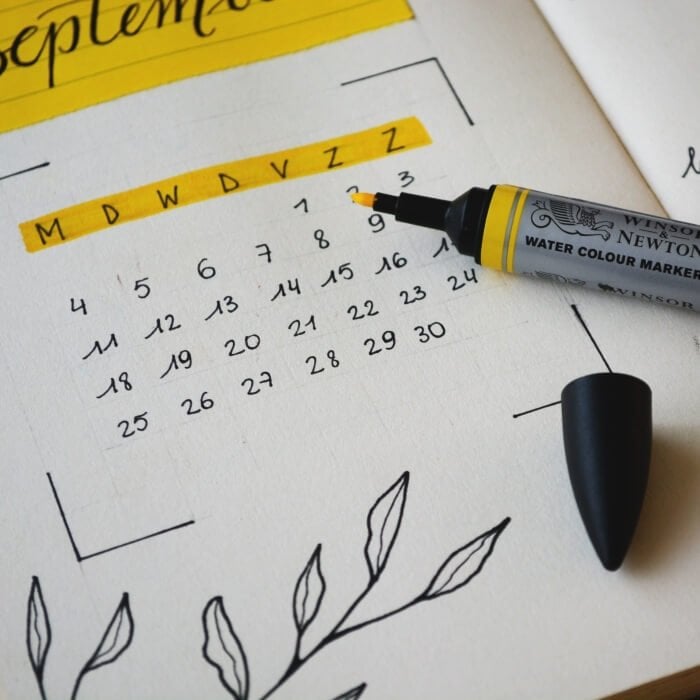 Septem
M D W D V Z Z
1 2 3
4 5 6 7 8 9
11 12 13 14 15 16
18 19 20 21 22 23 24
25 26 27 28 29 30
WINSOR
&
NEWTON
WATER COLOUR MARKER
WINSOR